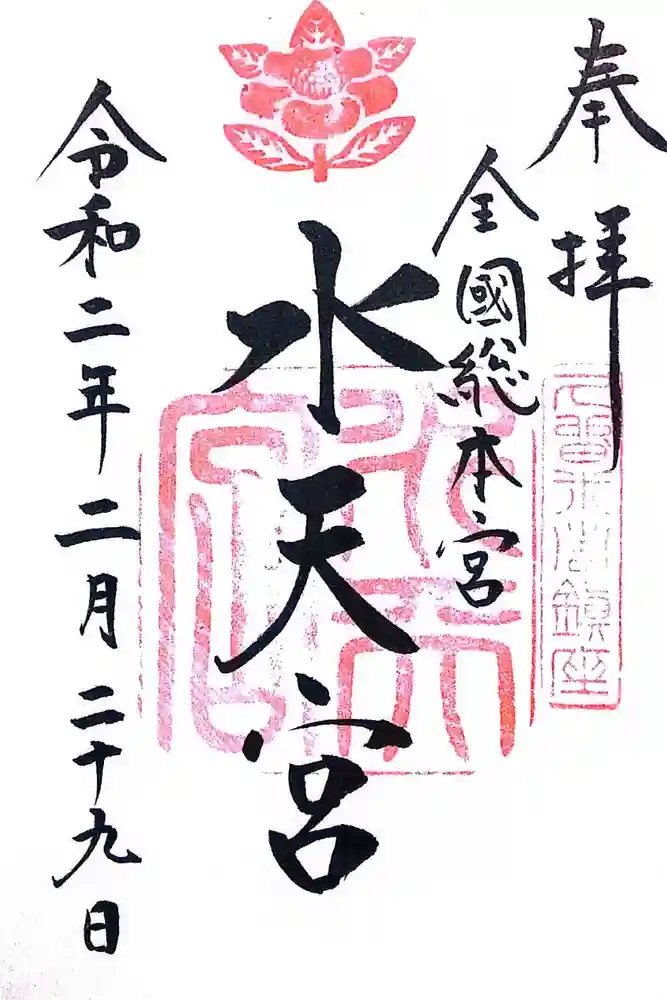 奉拝
鎮座
全國総本宮
水天宮
令和二年二月二十九日